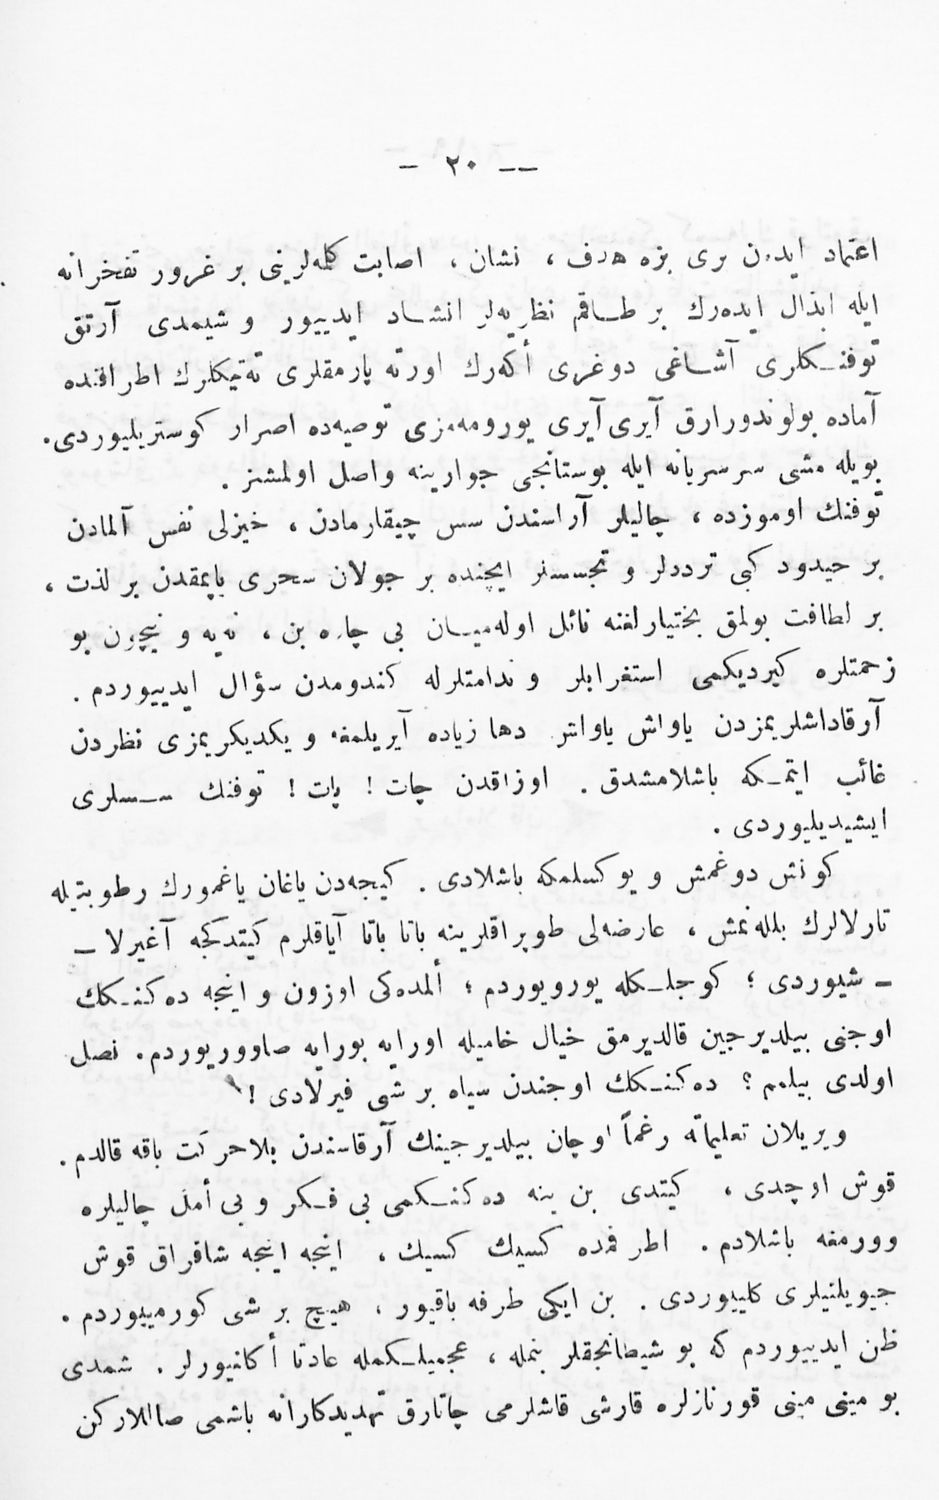 — ٢٠ —
اعتماد ايدن برى بزه هدف ، نشان ، اصابت كلمه‌لرينى بر غرور تفخرانه
ايله ابذال ايده‌رك بر طاقم نظريه‌لر انشاد ايدييور و شيمدى آرتق
توفنكلرى آشاغى دوغرى أكه‌رك اورته پارمقلرى تتيكلرك اطرافنده
آماده بولوندورارق آيرى آيرى يورومه‌مزى توصيه‌ده اصرار كوستريليوردى.
بويله مشى سرسريانه ايله بوستانجى جوارينه واصل اولمشز .
توفنك اوموزده ، چاليلر آراسندن سس چيقارمادن ، خيزلى نفس آلمادن
بر حيدود كبى ترددلر و تجسسلر ايچنده بر جولان سحرى ياپمقدن بر لذت ،
بر لطافت بولمق بختيارلغنه نائل اوله‌ميان بى چاره بن ، نه‌يه و نيچون بو
زحمتلره كيرديكمى استغرابلر و ندامتلرله كندومدن سؤال ايدييوردم .
آرقاداشلريمزدن ياواش ياواش دها زياده آيريلمغه و يكديكريمزى نظردن
غائب ايتمكه باشلامشدق . اوزاقدن چات ! پات ! توفنك سسلرى
ايشيديليوردى .
كونش دوغمش و يوكسلمكه باشلادى . كيجه‌دن ياغان ياغمورك رطوبتيله
تارلالرك بللەنمش ، عارضه‌لى طوپراقلرينه باتا باتا آياقلرم كيتدكجه آغيرلا –
– شيوردى ؛ كوجلكله يورويوردم ؛ ألمده‌كى اوزون و اينجه ده‌كنكك
اوجنى بيلديرجين قالديرمق خيال خاميله اورايه بورايه صاووريوردم. نصل
اولدى بيلمم ؟ ده‌كنكك اوجندن سياه بر شى فيرلادى !
ويريلان تعليماته رغماً اوچان بيلديرجينك آرقاسندن بلاحركت باقه قالدم.
قوش اوچدى ، كيتدى بن ينه ده‌كنكمى بى فكر و بى أمل چاليلره
وورمغه باشلادم . اطرافمده كسيك كسيك ، اينجه اينجه شاقراق قوش
جيويلتيلرى كلييوردى . بن ايكى طرفه باقيور ، هيچ بر شى كورميوردم .
ظن ايدييوردم كه بو شيطانجقلر بنمله ، عجميلكمله عادتا أكلنيورلر . شمدى
بو مينى مينى قورنازلره قارشى قاشلرمى چاتارق تهديدكارانه باشمى صاللاركن